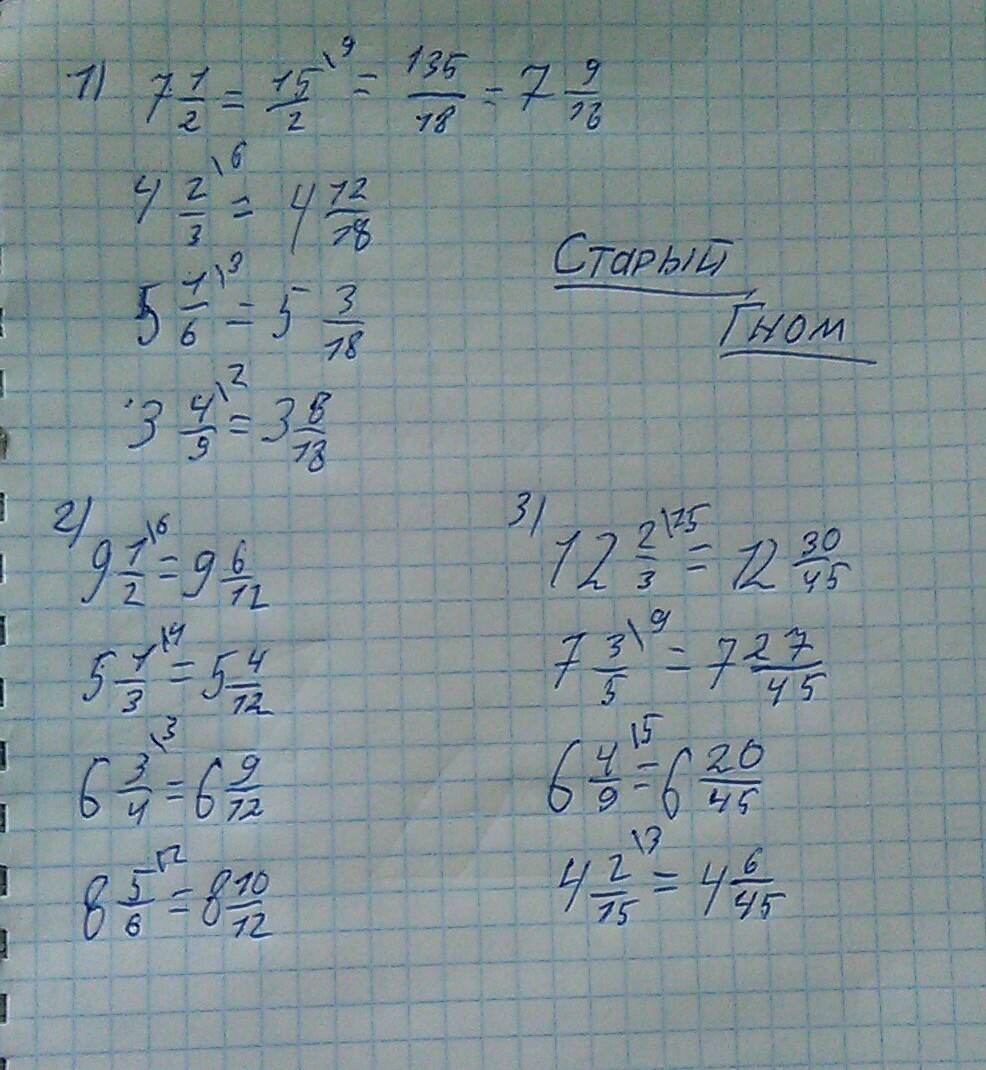 1) 7 1/2 = 15/2 \9 = 135/18 = 7 9/18
4 2/3 \6 = 4 12/18
5 1/6 \3 = 5 3/18
Старый
Гном
3 4/9 \2 = 3 8/18
2) 9 1/2 \6 = 9 6/12
5 1/3 \4 = 5 4/12
6 3/4 \3 = 6 9/12
8 5/6 \2 = 8 10/12
3) 12 2/3 \15 = 12 30/45
7 3/5 \9 = 7 27/45
6 4/9 \5 = 6 20/45
4 2/15 \3 = 4 6/45